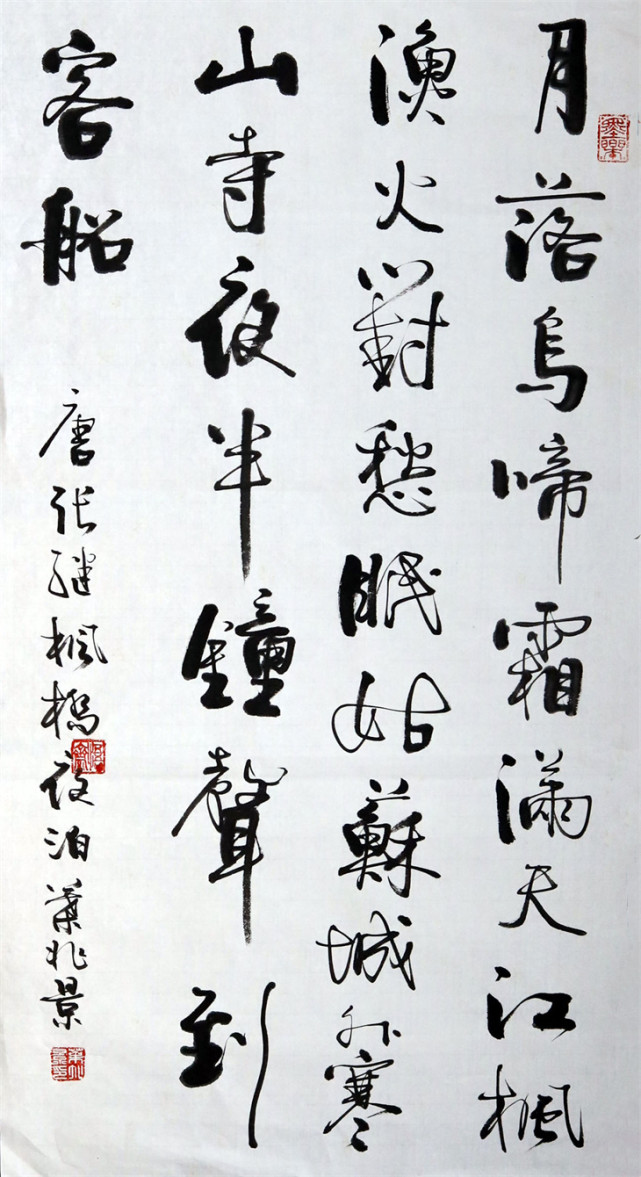 月落烏啼霜滿天江楓
漁火對愁眠姑蘇城外寒
山寺夜半鐘聲到
客船
唐張繼楓橋夜泊葉兆景